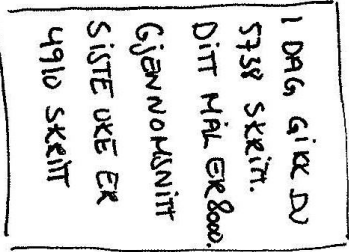 I DAG GIKK DU
5738 SKRITT.
DITT MÅL ER 8000.
GJENNOMSNITT
SISTE UKE ER
4910 SKRITT